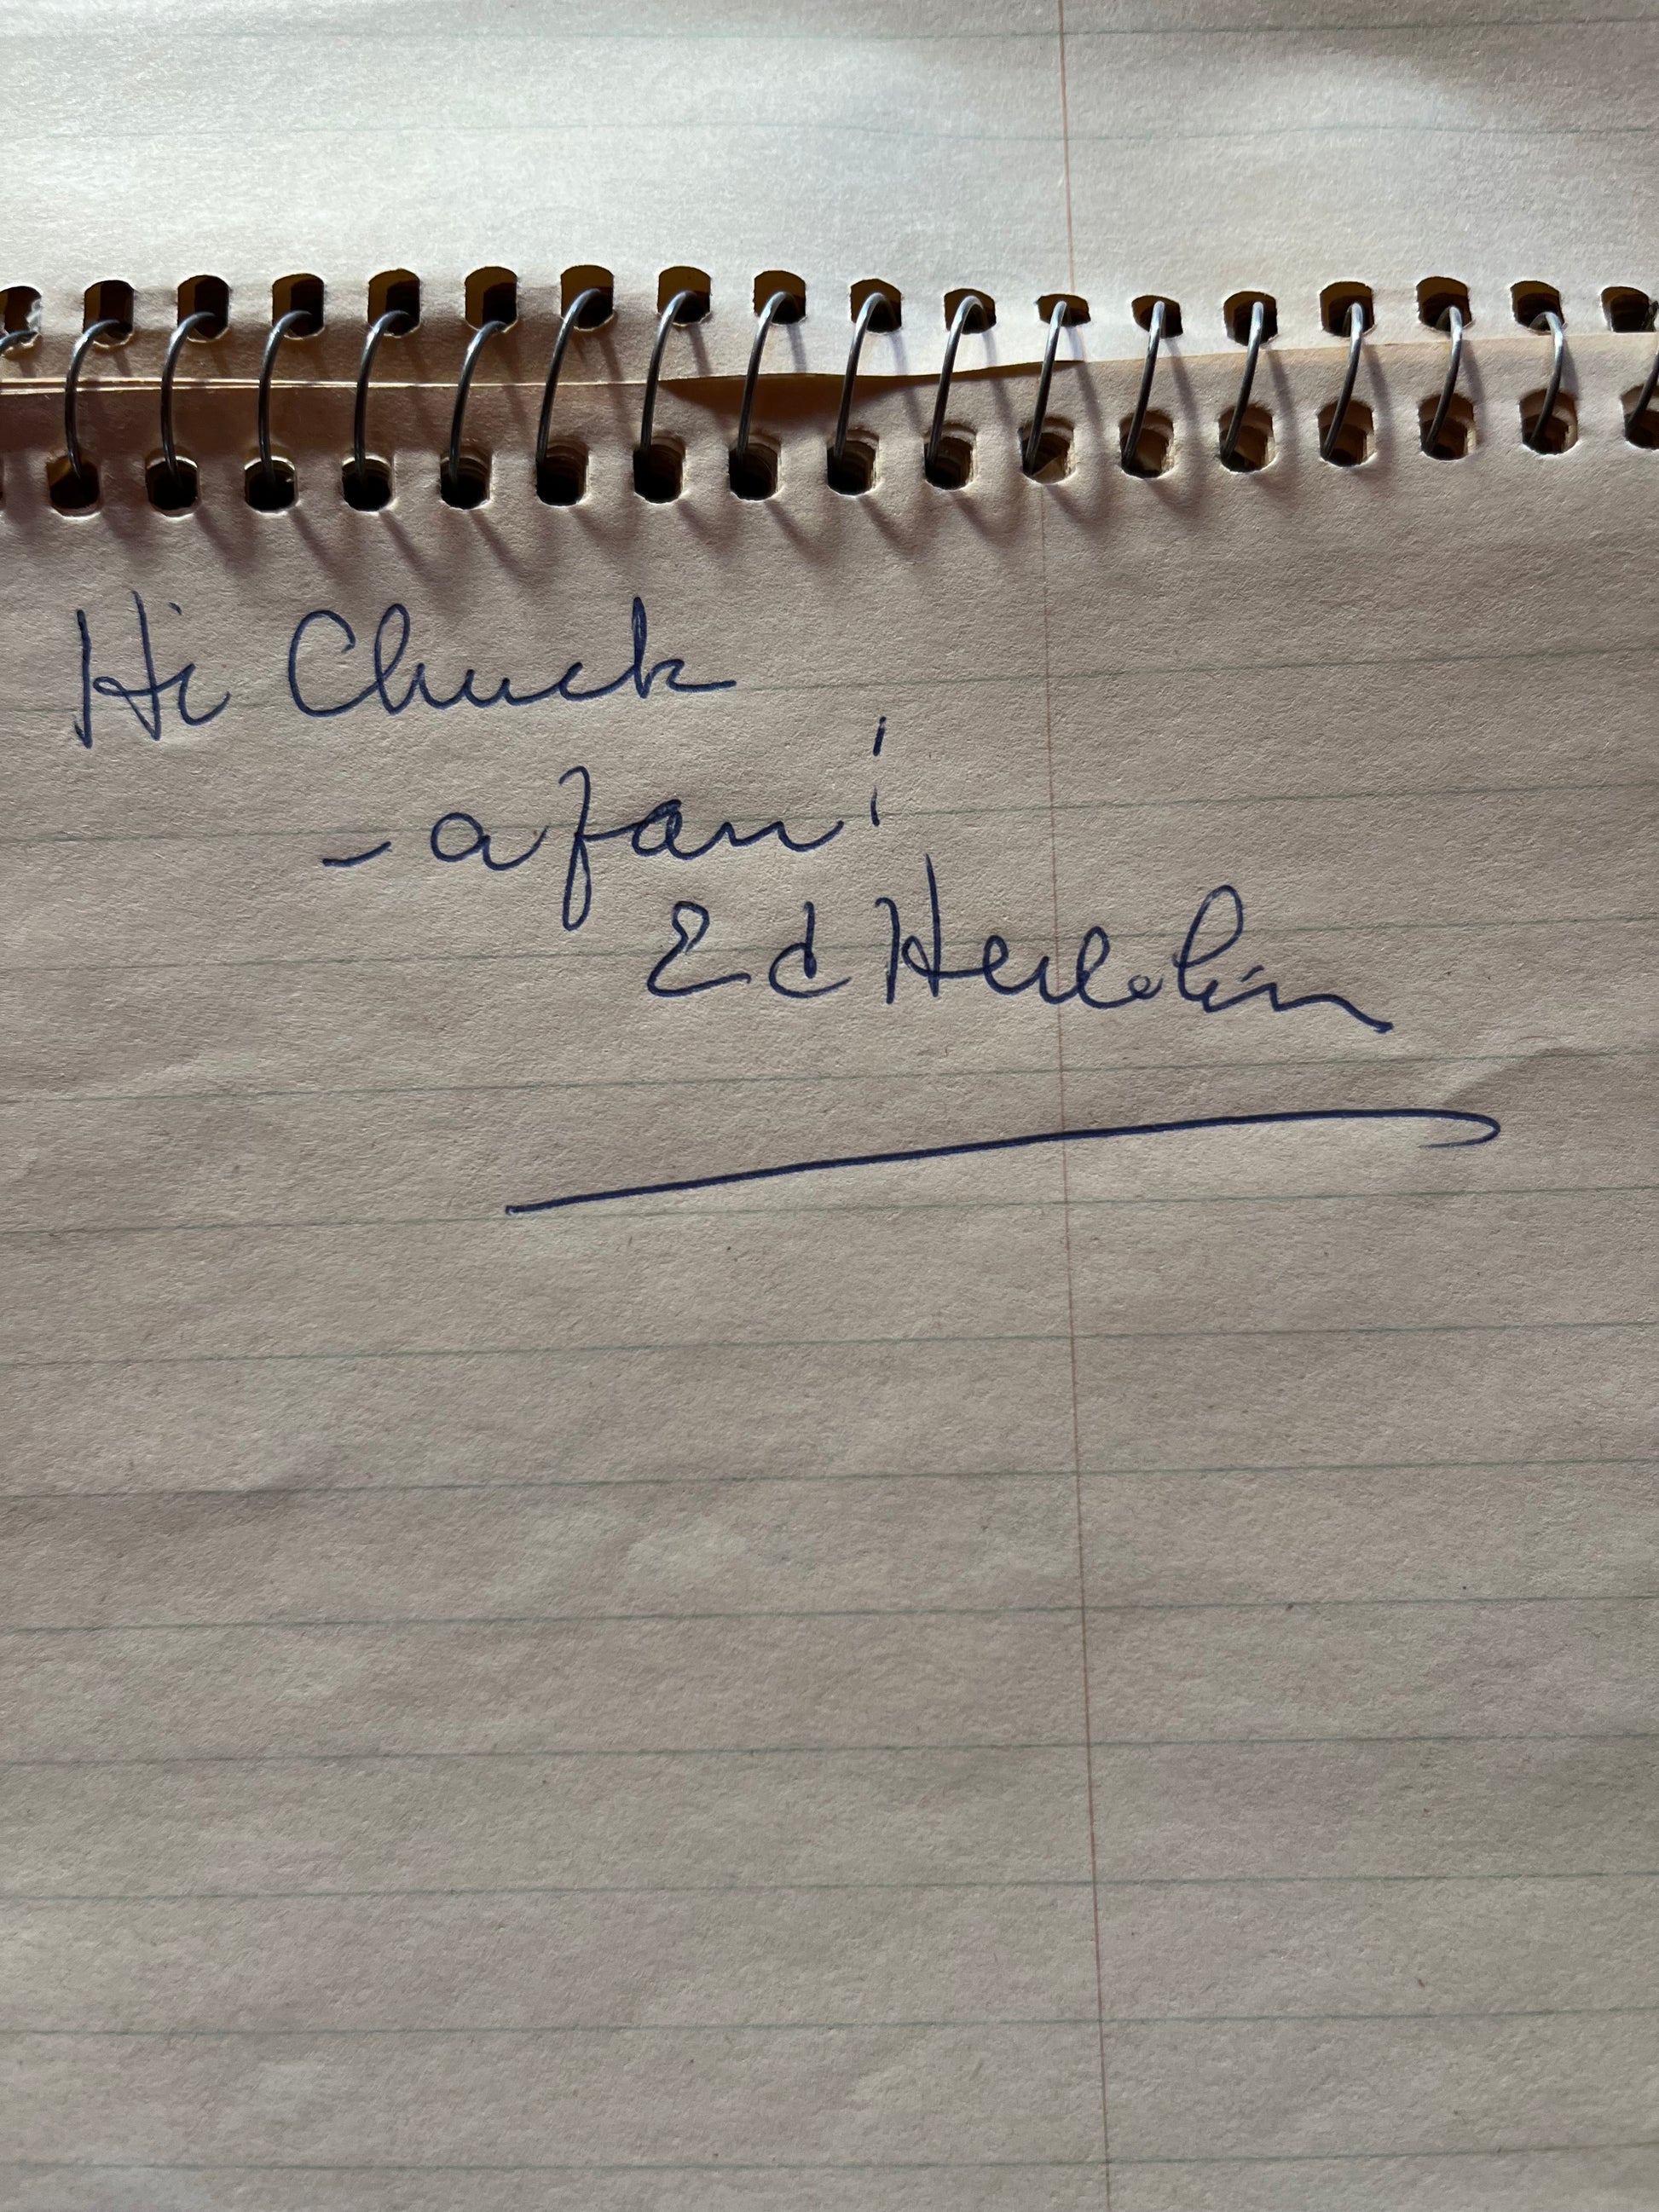 Hi Chuck
- a fan!
Ed